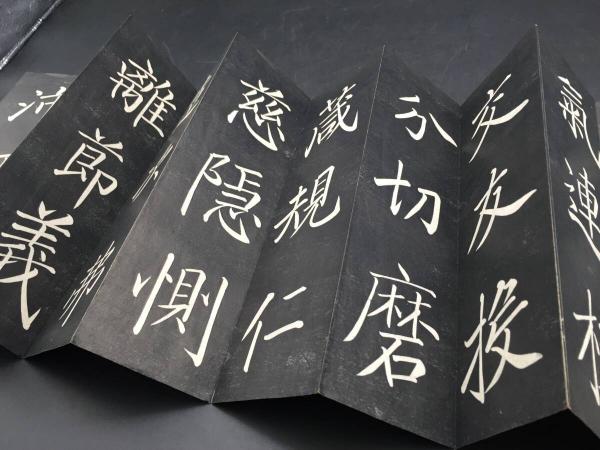 氣連
交友投
分切磨
箴規仁
慈隱惻
弗
離節義
沛